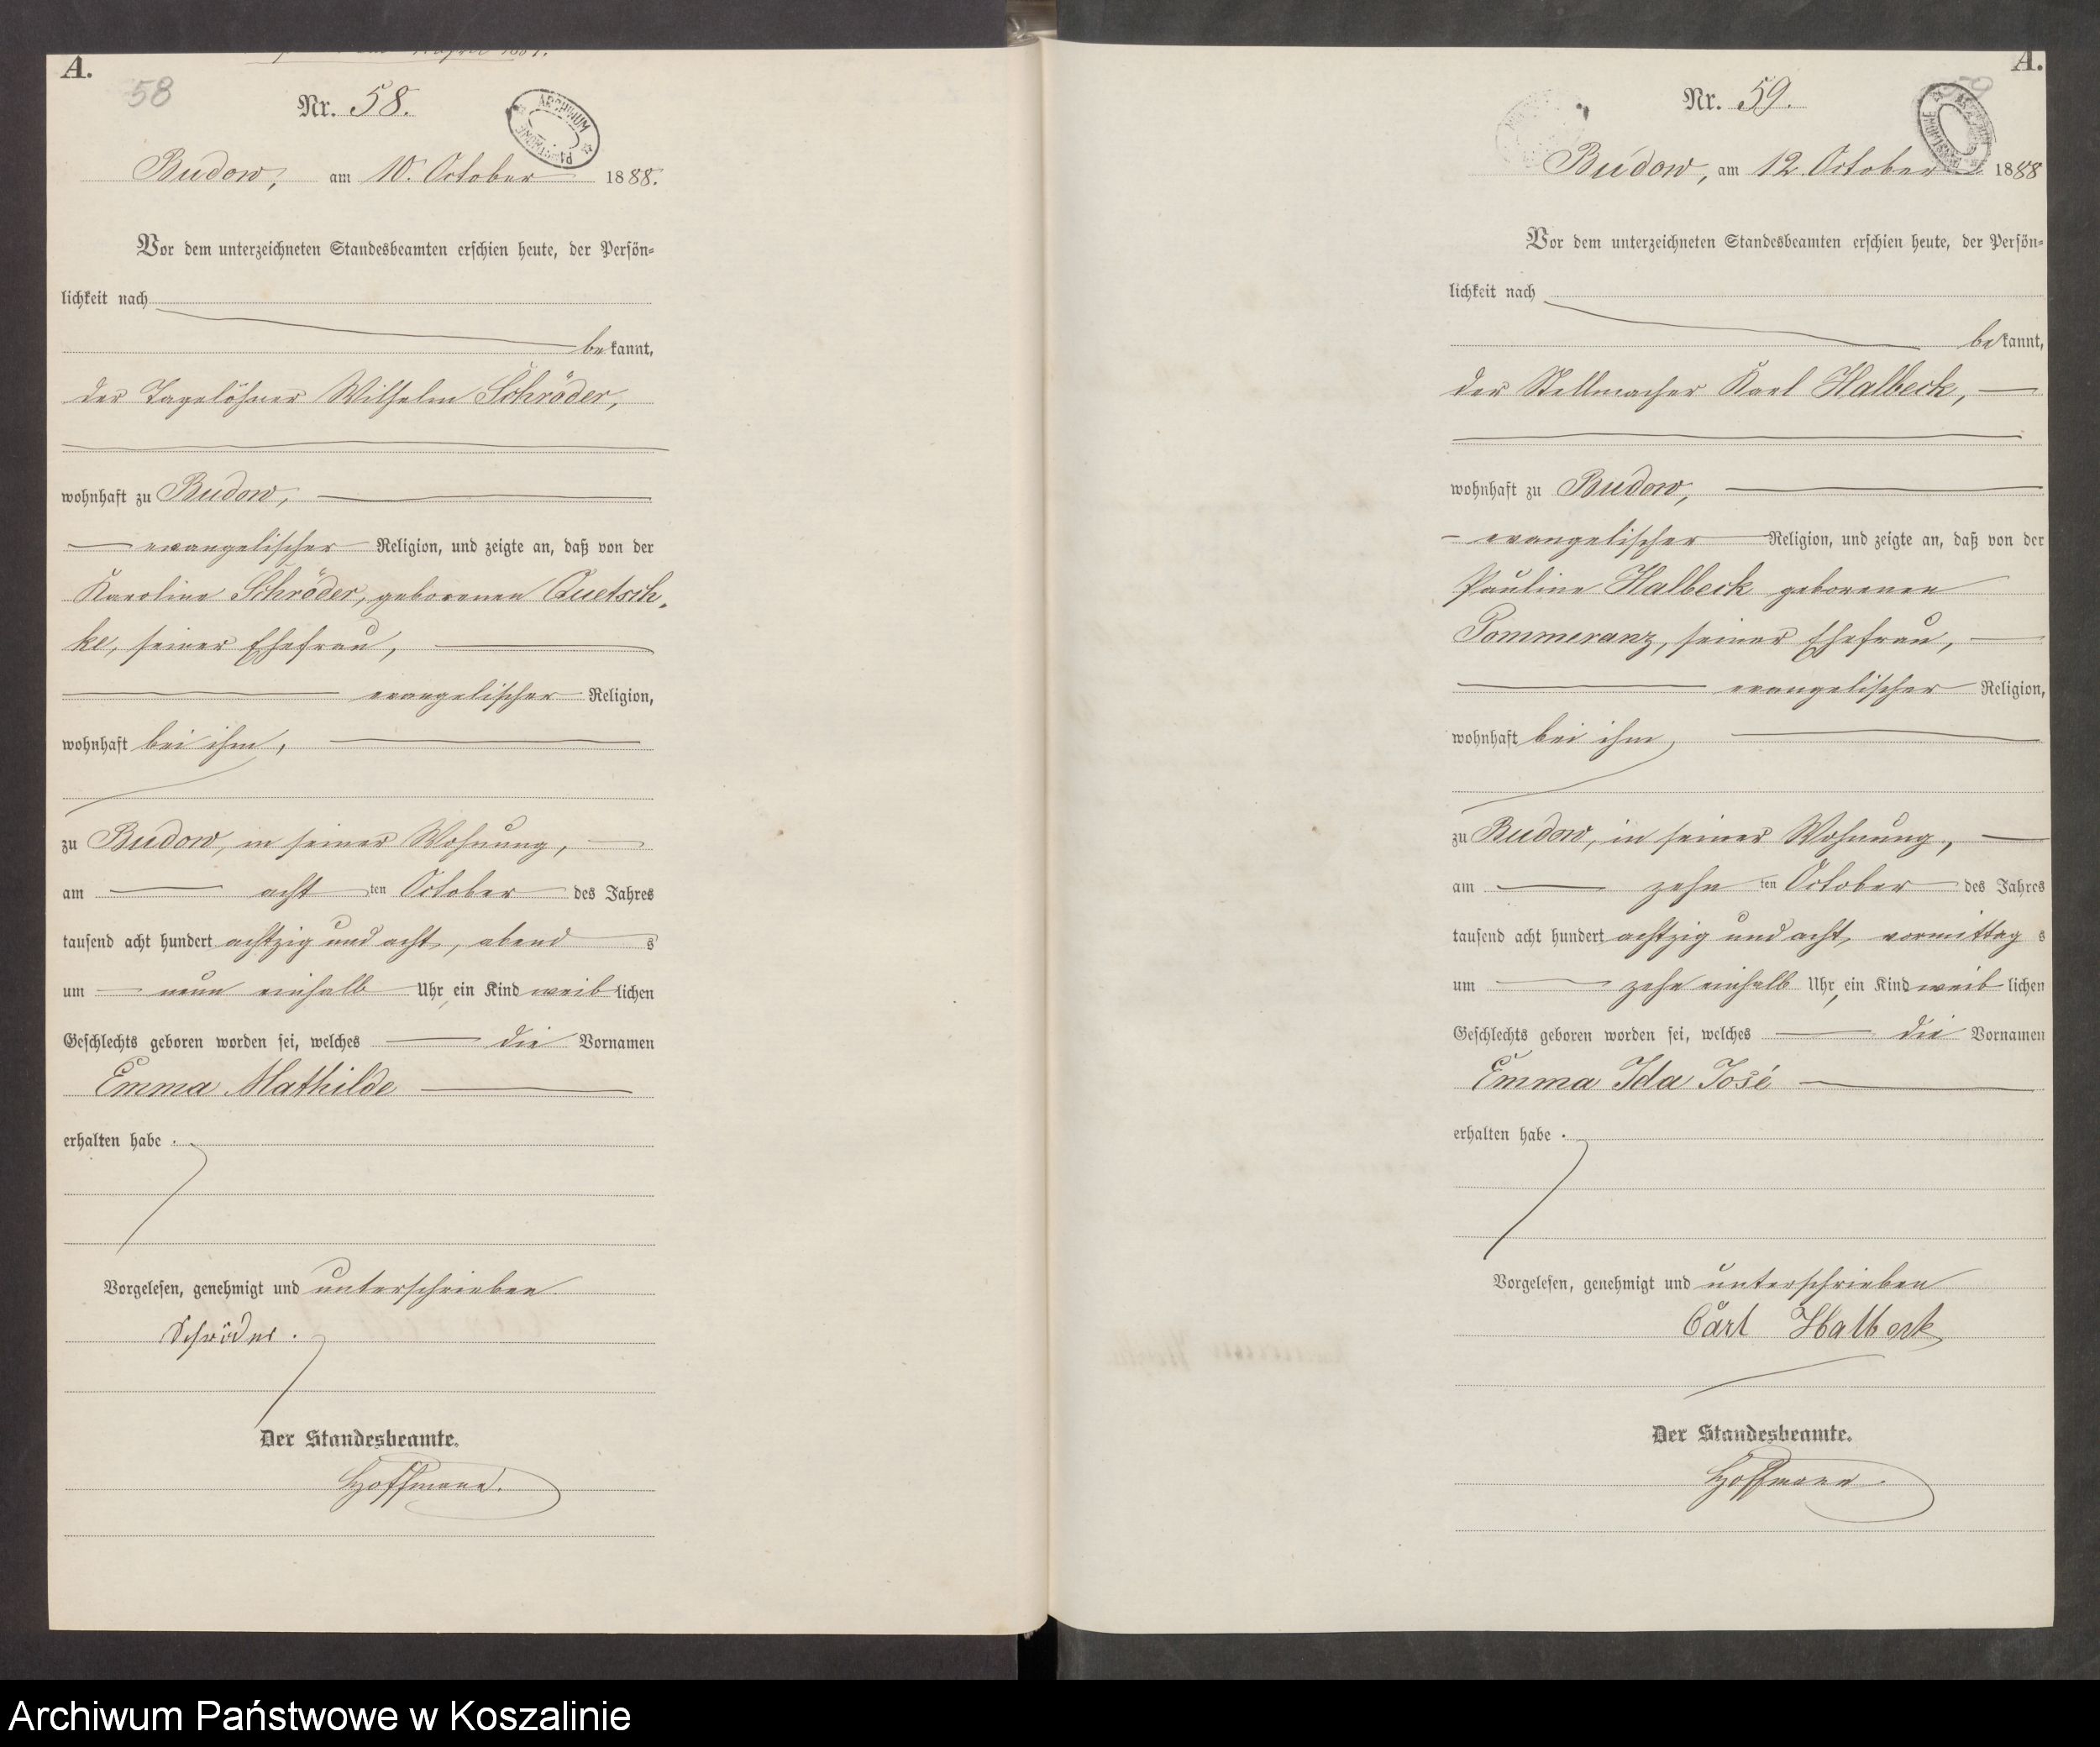 A.
58
Nr. 58.
Budow, am 10. October 1888.
Vor dem unterzeichneten Standesbeamten erschien heute, der Persön-
lichkeit nach
bekannt,
der Tagelöhner Wilhelm Schröder,
wohnhaft zu Budow,
evangelischer Religion, und zeigte an, daß von der
Karoline Schröder, geborenen Quetsch-
ke, seiner Ehefrau,
evangelischer Religion,
wohnhaft bei ihm,
zu Budow, in seiner Wohnung,
am acht ten October des Jahres
tausend acht hundert achtzig und acht, abend s
um neun einhalb Uhr, ein Kind weiblichen
Geschlechts geboren worden sei, welches die Vornamen
Emma Mathilde
erhalten habe.
Vorgelesen, genehmigt und unterschrieben
Schröder.
Der Standesbeamte.
Hoffmann.
A.
59
Nr. 59.
Budow, am 12. October 1888
Vor dem unterzeichneten Standesbeamten erschien heute, der Persön-
lichkeit nach
bekannt,
der Stellmacher Karl Halbeck,
wohnhaft zu Budow,
evangelischer Religion, und zeigte an, daß von der
Pauline Halbeck geborenen
Pommeranz, seiner Ehefrau,
evangelischer Religion,
wohnhaft bei ihm,
zu Budow, in seiner Wohnung,
am zehn ten October des Jahres
tausend acht hundert achtzig und acht, vormittag s
um zehn einhalb Uhr, ein Kind weiblichen
Geschlechts geboren worden sei, welches die Vornamen
Emma Ida José
erhalten habe.
Vorgelesen, genehmigt und unterschrieben
Carl Halbeck
Der Standesbeamte.
Hoffmann.
Archiwum Państwowe w Koszalinie